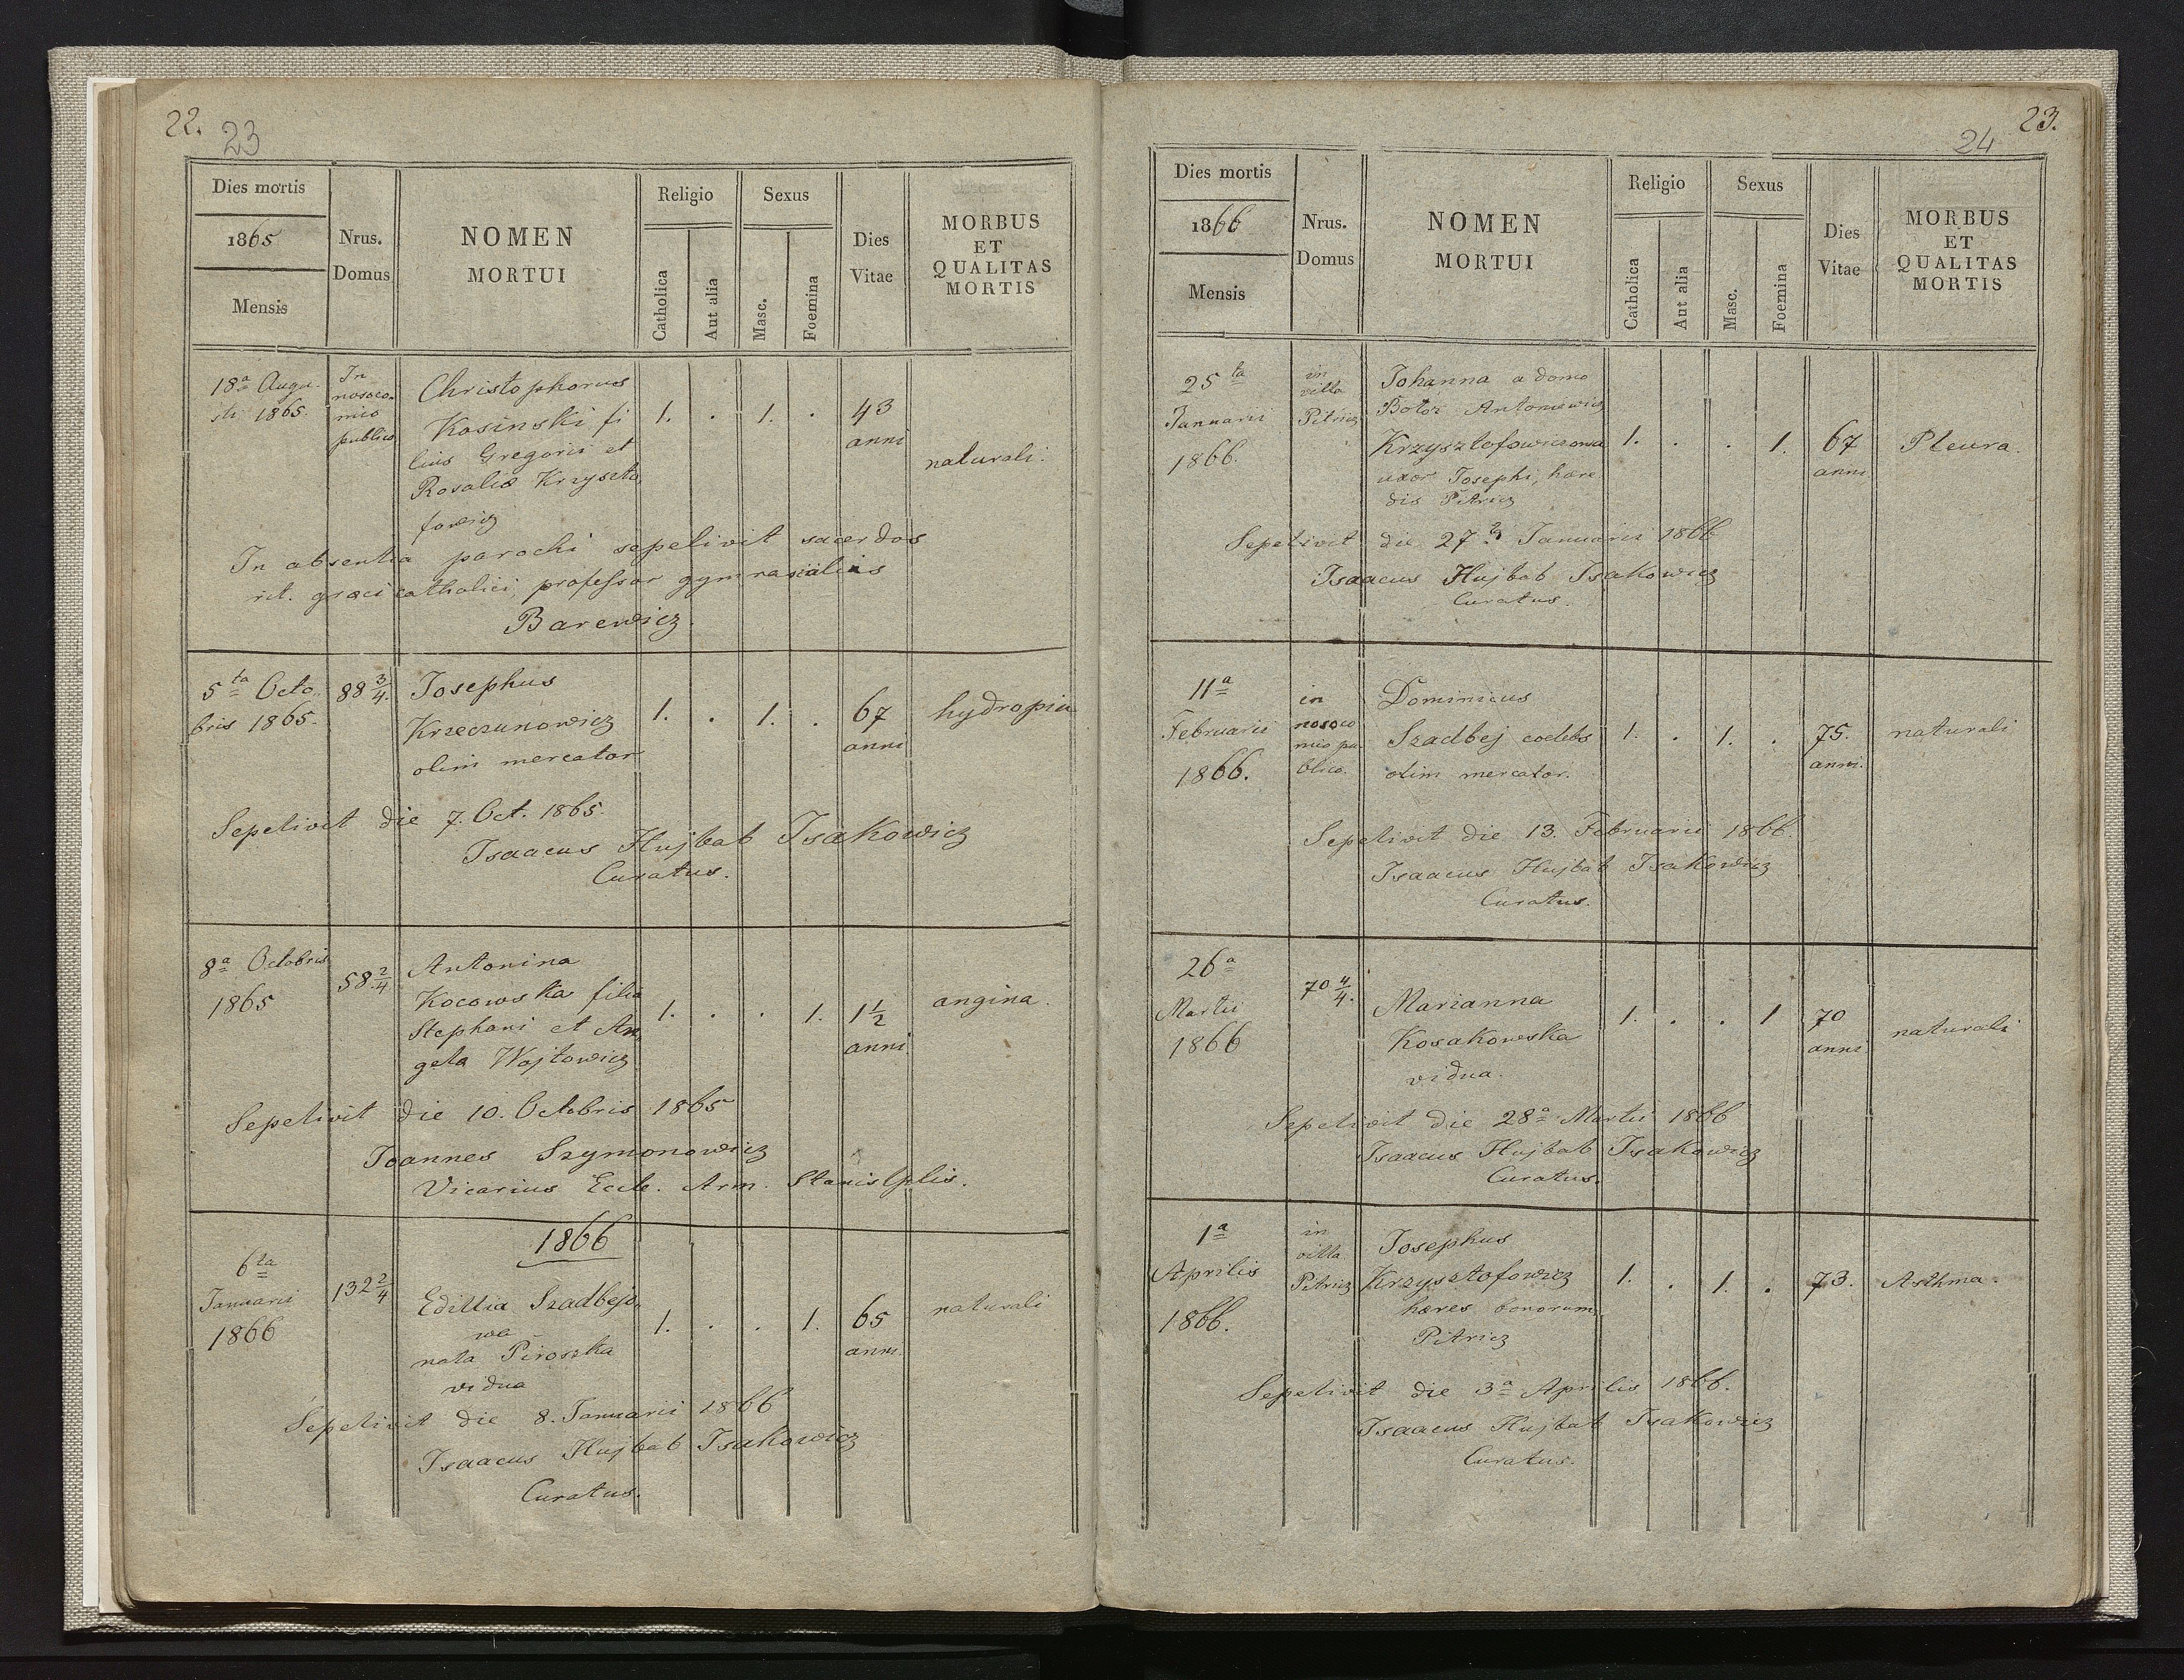 22.
23
Dies mortis
1865
Mensis
Nrus.
Domus
NOMEN
MORTUI
Religio
Catholica
Aut alia
Sexus
Masc.
Foemina
Dies
Vitae
MORBUS
ET
QUALITAS
MORTIS
18a Augu
sti 1865.
In
nosoco-
mio
publico
Christophorus
Kosinski fi
lius Gregorii et
Rosaliæ Krzyszto
fowicz
1. . 1. .
43
anni
naturali.
In absentia parochi sepelivit sacerdos
rit. græci catholici, professor gymnasialis
Barewicz.
5ta Octo
bris 1865.
88 3/4.
Josephus
Krzeczunowicz
olim mercator
1. . 1. .
67
anni
hydropia
Sepelivit die 7. Oct. 1865.
Isaacus Hujbab Isakowicz
Curatus.
8a Octobris
1865
58 2/4
Antonina
Kocowska filia
Stephani et An
gela Wojtowicz
1. . . 1.
1 1/2
anni
angina.
Sepelivit die 10. Octobris 1865
Joannes Szymonowicz
Vicarius Eccle. Arm. Stanis
1866
6ta
Januarii
1866
132 2/4
Edillia Szadbejo
wa
nata Piroszka
vidua
1. . . 1.
65
anni.
naturali
Sepelivit die 8. Januarii 1866
Isaacus Hujbab Isakowicz
Curatus.
23.
24
Dies mortis
1866
Mensis
Nrus.
Domus
NOMEN
MORTUI
Religio
Catholica
Aut alia
Sexus
Masc.
Foemina
Dies
Vitae
MORBUS
ET
QUALITAS
MORTIS
25ta
Januarii
1866.
in
villa
Pitricz
Johanna a domo
Botoz Antoniewicz
Krzysztofowiczowa
uxor Josephi, hære
dis Pitricz
1. . . 1.
67
anni
Pleura.
Sepelivit die 27a Januarii 1866
Isaacus Hujbab Isakowicz
Curatus.
11a
Februarii
1866.
in
nosoco
mio pu
blico.
Dominicus
Szadbej coelebs
olim mercator.
1. . 1. .
75.
anni.
naturali
Sepelivit die 13. Februarii 1866.
Isaacus Hujbab Isakowicz
Curatus.
26a
Martii
1866
70 4/4.
Marianna
Kosakowska
vidua.
1. . . 1
70
anni
naturali
Sepelivit die 28a Martii 1866
Isaacus Hujbab Isakowicz
Curatus.
1a
Aprilis
1866.
in
villa
Pitricz
Josephus
Krzysztofowicz
hæres bonorum
Pitricz
1. . 1. .
73.
Asthma.
Sepelivit die 3a Aprilis 1866.
Isaacus Hujbab Isakowicz
Curatus.